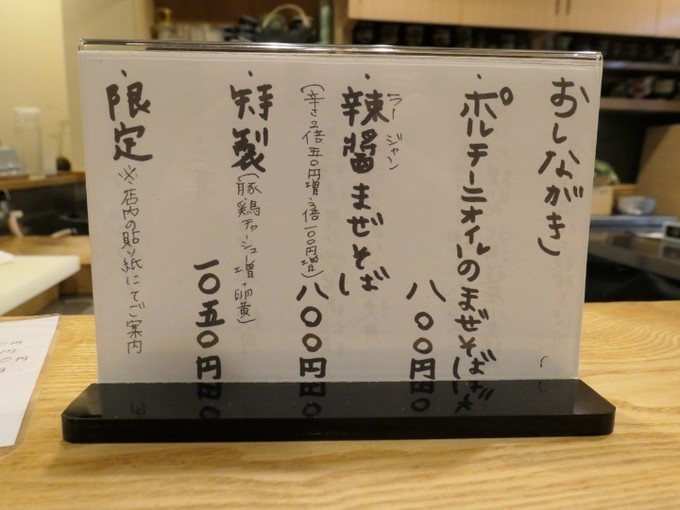 おしながき
・ポルチーニオイルのまぜそば
八〇〇円
・辣醤まぜそば
ラー ジャン
(辛さ2倍五〇円増・3倍一〇〇円増)
八〇〇円
・特製
(豚、鶏チャーシュー増・卵黄)
一〇五〇円
・限定
※店内の貼り紙にてご案内